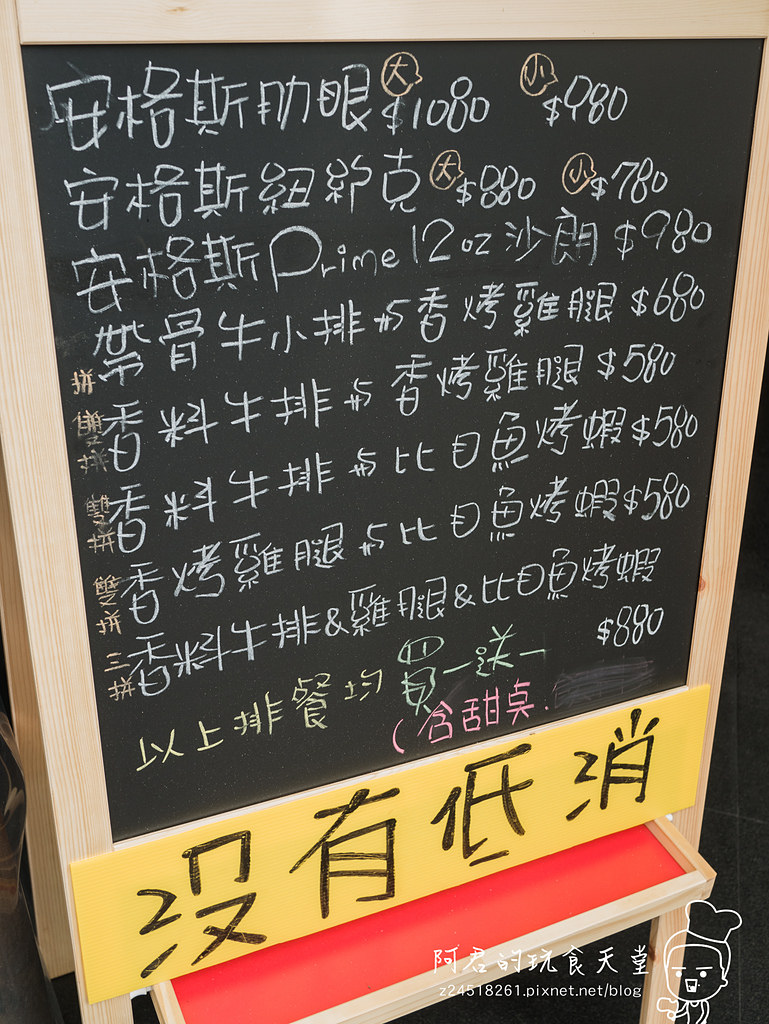 安格斯肋眼 大 $1080 小 $980
安格斯紐約克 大 $880 小 $780
安格斯Prime 12oz沙朗 $980
帶骨牛小排与香烤雞腿 $680
雙拼 香料牛排与香烤雞腿 $580
雙拼 香料牛排与比目魚烤蝦 $580
雙拼 香烤雞腿与比目魚烤蝦 $580
三拼 香料牛排&雞腿&比目魚烤蝦
$880
以上排餐均買一送一
(含甜桌.
沒有低消
阿君的玩食天堂
z24518261.pixnet.net/blog